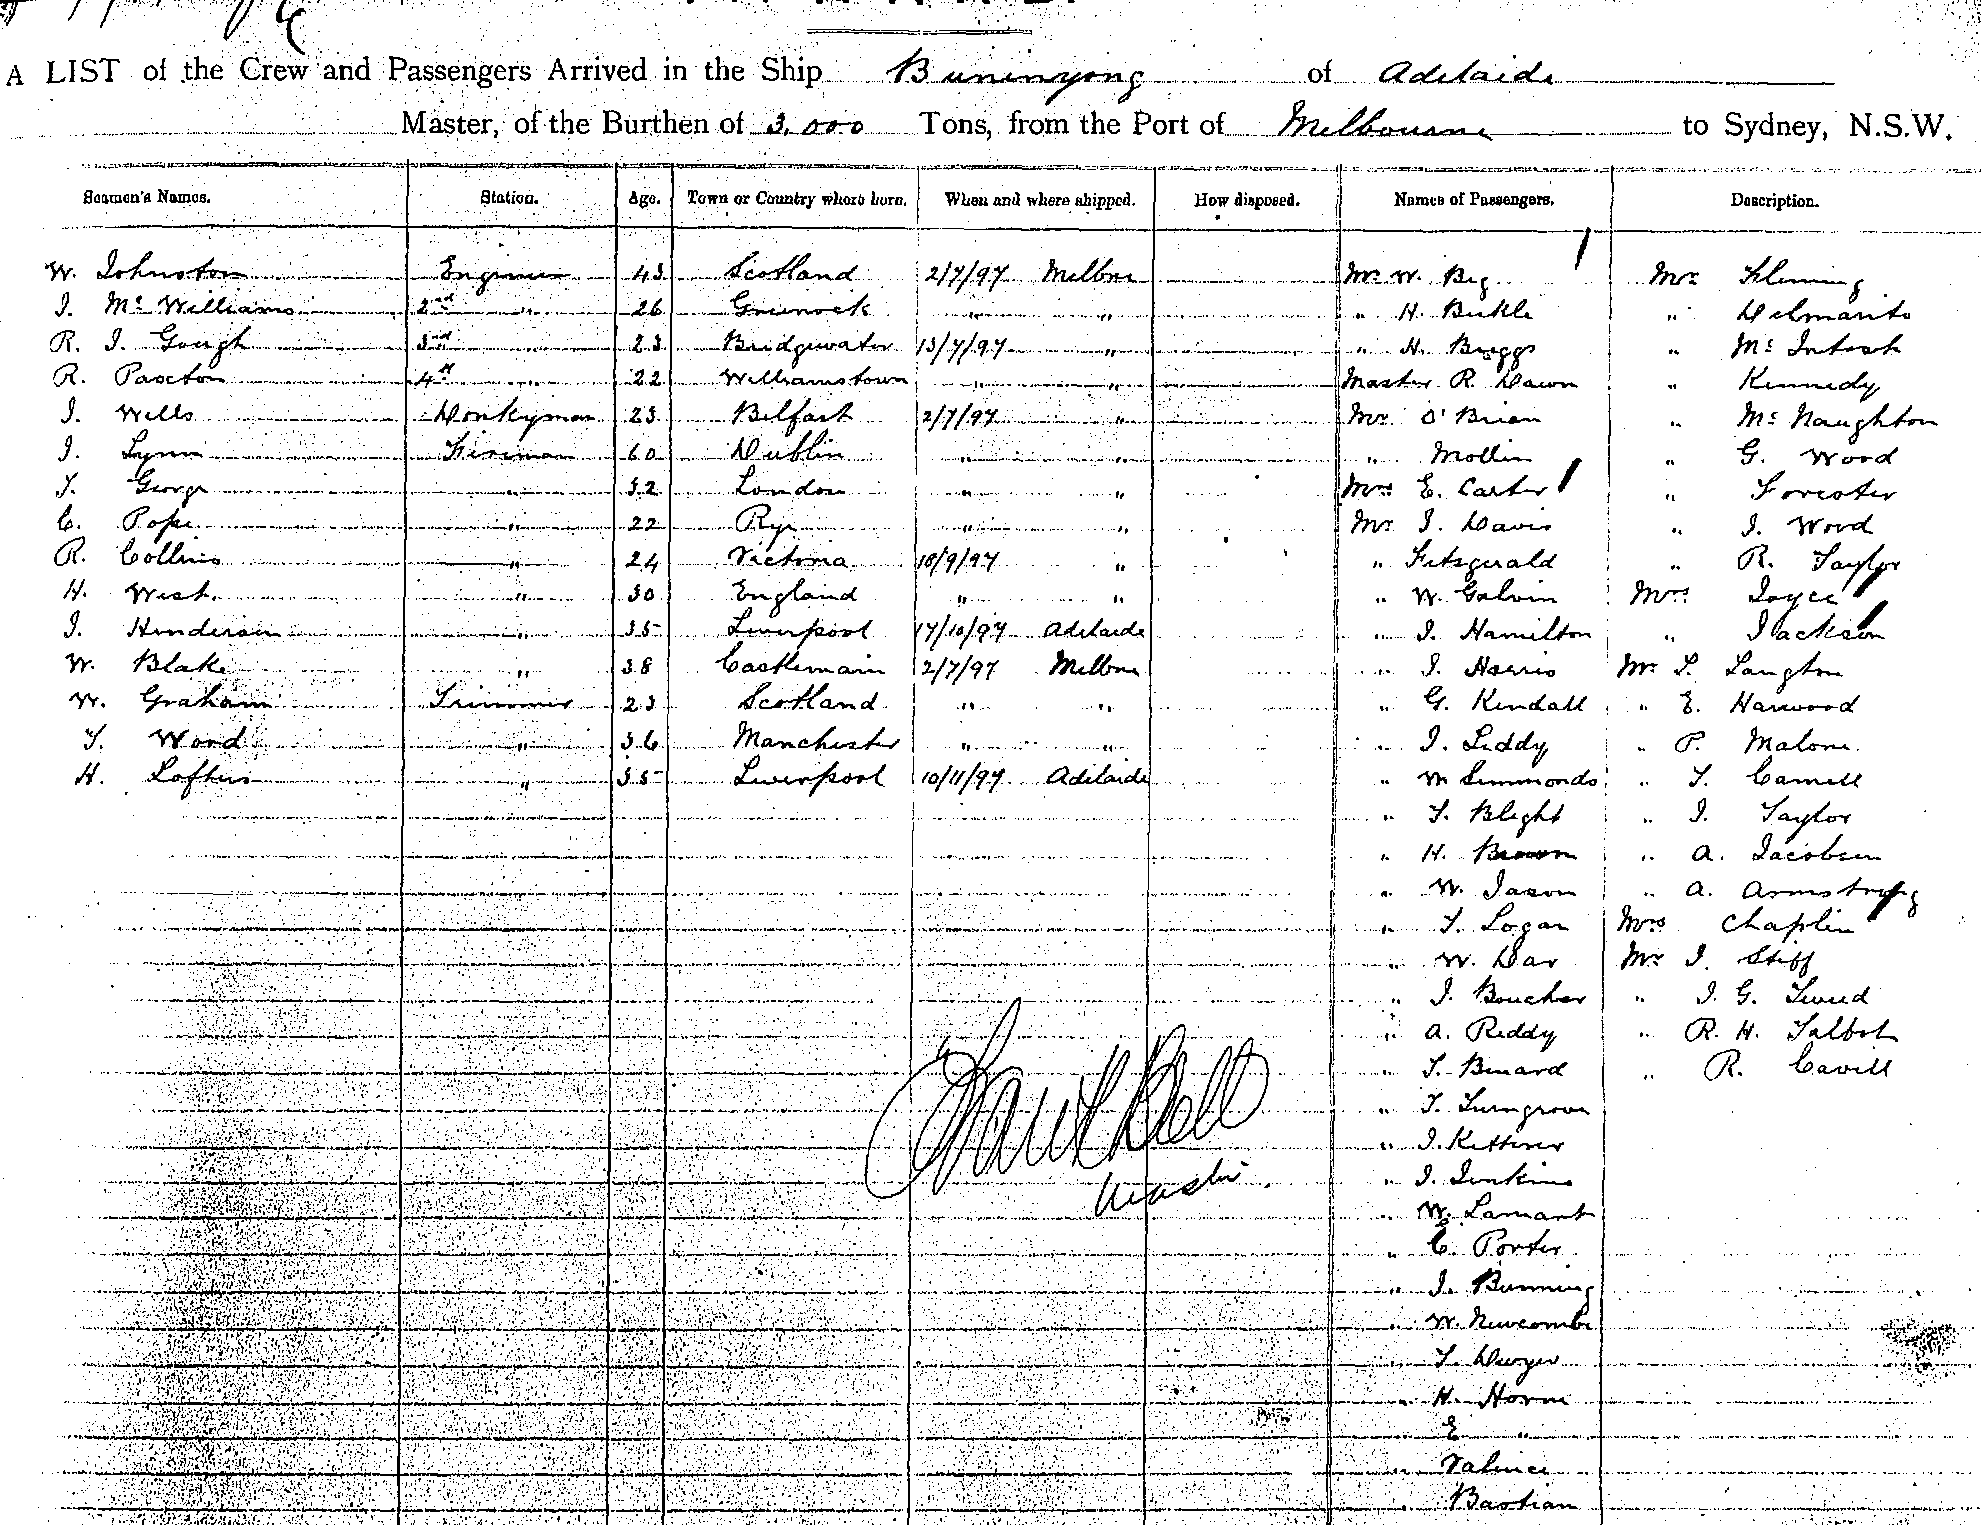 A LIST of the Crew and Passengers Arrived in the Ship Buninyong of Adelaide
Master, of the Burthen of 3,000 Tons, from the Port of Melbourne to Sydney, N.S.W.
Seamen's Names. Station. Age. Town or Country where born. When and where shipped. How disposed. Names of Passengers. Description.
W. Johnston Engineer 43 Scotland 2/7/97 Melbne Mr. W. Beg Mr Fleming
J. Mc Williams 2nd " 26 Greenock " " " H. Bickle " Delmarito
R. J. Gough 3rd " 23 Bridgewater 13/7/97 " " H. Briggs " Mc Intosh
R. Paxton 4th " 22 Williamstown " " Master R. Dawn " Kennedy
J. Wells Donkyman 23 Belfast 2/7/97 " Mr O'Brien " Mc Naughton
J. Lynn Fireman 60 Dublin " " " Mollin " G. Wood
T. George " 32 London " " Mrs E. Carter " Forester
C. Pope " 22 Rye " " Mr J. Davis " J. Wood
R. Collins " 24 Victoria 10/9/97 " " Fitzgerald " R. Taylor
H. West " 30 England " " " W. Galvin Mrs Joyce
J. Henderson " 35 Liverpool 17/10/97 Adelaide " J. Hamilton " Jackson
W. Blake " 38 Castlemain 2/7/97 Melbne " J. Harris Mr L. Langton
W. Graham Trimmer 23 Scotland " " " G. Kendall " E. Harwood
T. Wood " 36 Manchester " " " J. Liddy " P. Malone
H. Lofthus " 35 Liverpool 10/11/97 Adelaide " W Simmonds " T. Camell
" T. Blight " J. Taylor
" H. Brown " A. Jacobsen
" W. Jason " A. Armstrong
" T. Logan Mrs Chaplin
" W. Dar Mr J. Stiff
" J. Boucher " J. G. Tweed
" A. Reddy " R. H. Talbot
" T. Benard " R. Cavill
" T. Turngrove
" J. Ketterer
" J. Jenkins
Master.
" W. Lamant
" C. Porter
" J. Bunning
" W. Newcombe
" T. Dwyer
" H. Horne
" E "
" Valence
" Bastian